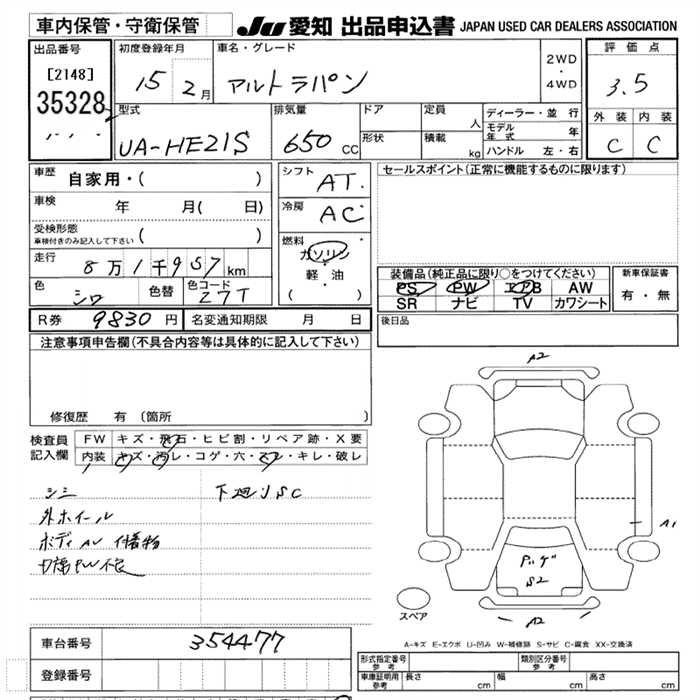 車内保管・守衛保管
JU 愛知 出品申込書 JAPAN USED CAR DEALERS ASSOCIATION
出品番号 初度登録年月 車名・グレード 評価点
[2148] 15 2月 アルトラパン 2WD・4WD 3.5
35328
型式 排気量 ドア 定員 ディーラー・並行 外装 内装
UA-HE21S 650 CC 人 モデル年式 年 C C
形状 積載 kg ハンドル 左・右
車歴 自家用・( ) シフト AT. セールスポイント(正常に機能するものに限ります)
車検 年 月( 日) 冷房 AC
受検形態 ( )
車検付きのみ記入して下さい
燃料 ガソリン
軽・油
( )
走行 8万1千957km
装備品(純正品に限り○をつけてください) 新車保証書
PS PW エアB AW 有・無
SR ナビ TV カワシート
色 シロ 色替 色コード Z7T
R券 9830円 名変通知期限 月 日 後日品
注意事項申告欄(不具合内容等は具体的に記入して下さい)
修復歴 有(箇所 )
検査員記入欄 FW キズ・飛石・ヒビ割・リペア跡・X要
内装 キズ・汚レ・コゲ・穴・スレ・キレ・破レ
シミ 下廻りSC
外ホイール
ボディAU 付着物
A2
A1
S2
A2
スペア
A-キズ E-エクボ U-凹み W-補修跡 S-サビ C-腐食 XX-交換済
車台番号 354477
登録番号
形式指定番号 参考 類別区分番号 参考
車庫証明用 参考 長さ cm 幅 cm 高さ cm